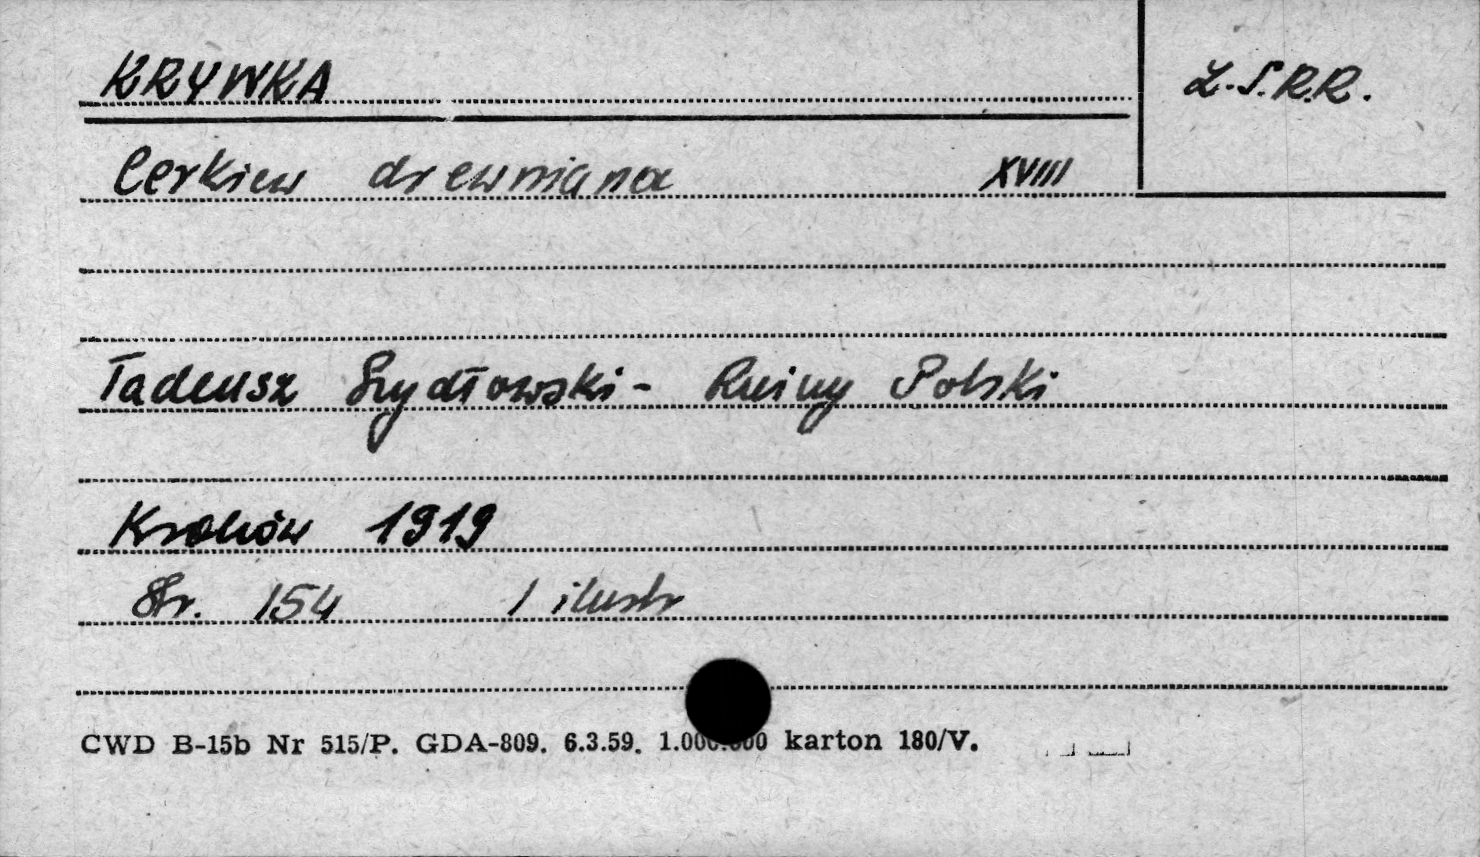 KRYWKA
Z.S.R.R.
Cerkiew drewniana XVIII
Tadeusz Szydłowski - Ruiny Polski
Kraków 1919
Str. 154 1 ilustr
CWD B-15b Nr 515/P. GDA-809. 6.3.59. 1.000.000 karton 180/V.